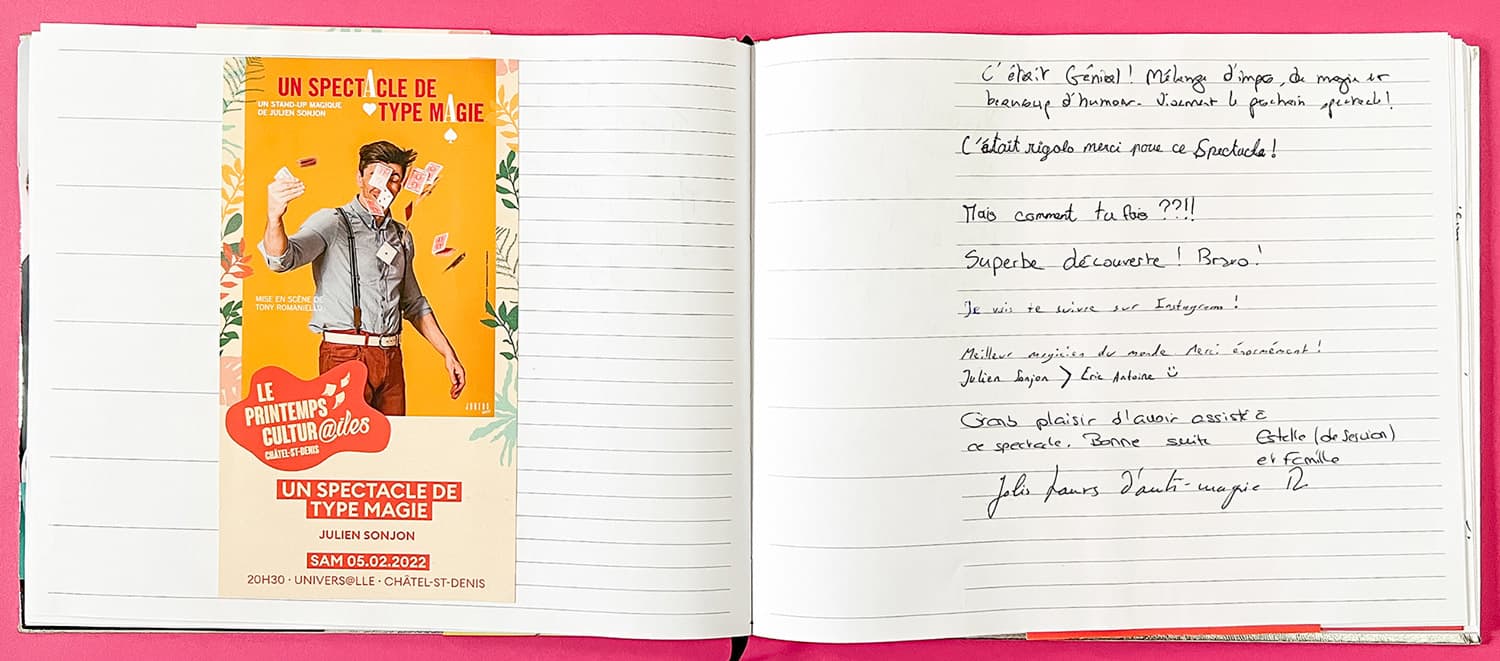 UN SPECTACLE DE
TYPE MAGIE
UN STAND-UP MAGIQUE
DE JULIEN SONJON
MISE EN SCÈNE DE
TONY ROMANIELLO
LE
PRINTEMPS
CULTUR@iles
CHÂTEL-ST-DENIS
UN SPECTACLE DE
TYPE MAGIE
JULIEN SONJON
SAM 05.02.2022
20H30 · UNIVERS@LLE · CHÂTEL-ST-DENIS
C'était Génial! Mélange d'impro, de magie et
beaucoup d'humour. Vivement le prochain spectacle!
C'était rigolo merci pour ce Spectacle!
Mais comment tu fais ??!!
Superbe découverte! Bravo!
Je vais te suivre sur Instagram!
Meilleur magicien du monde Merci énormément!
Julien Sonjon > Eric Antoine
Grand plaisir d'avoir assisté à
ce spectacle. Bonne suite Estelle (de Servion)
et Famille
Jolis tours d'anti-magie